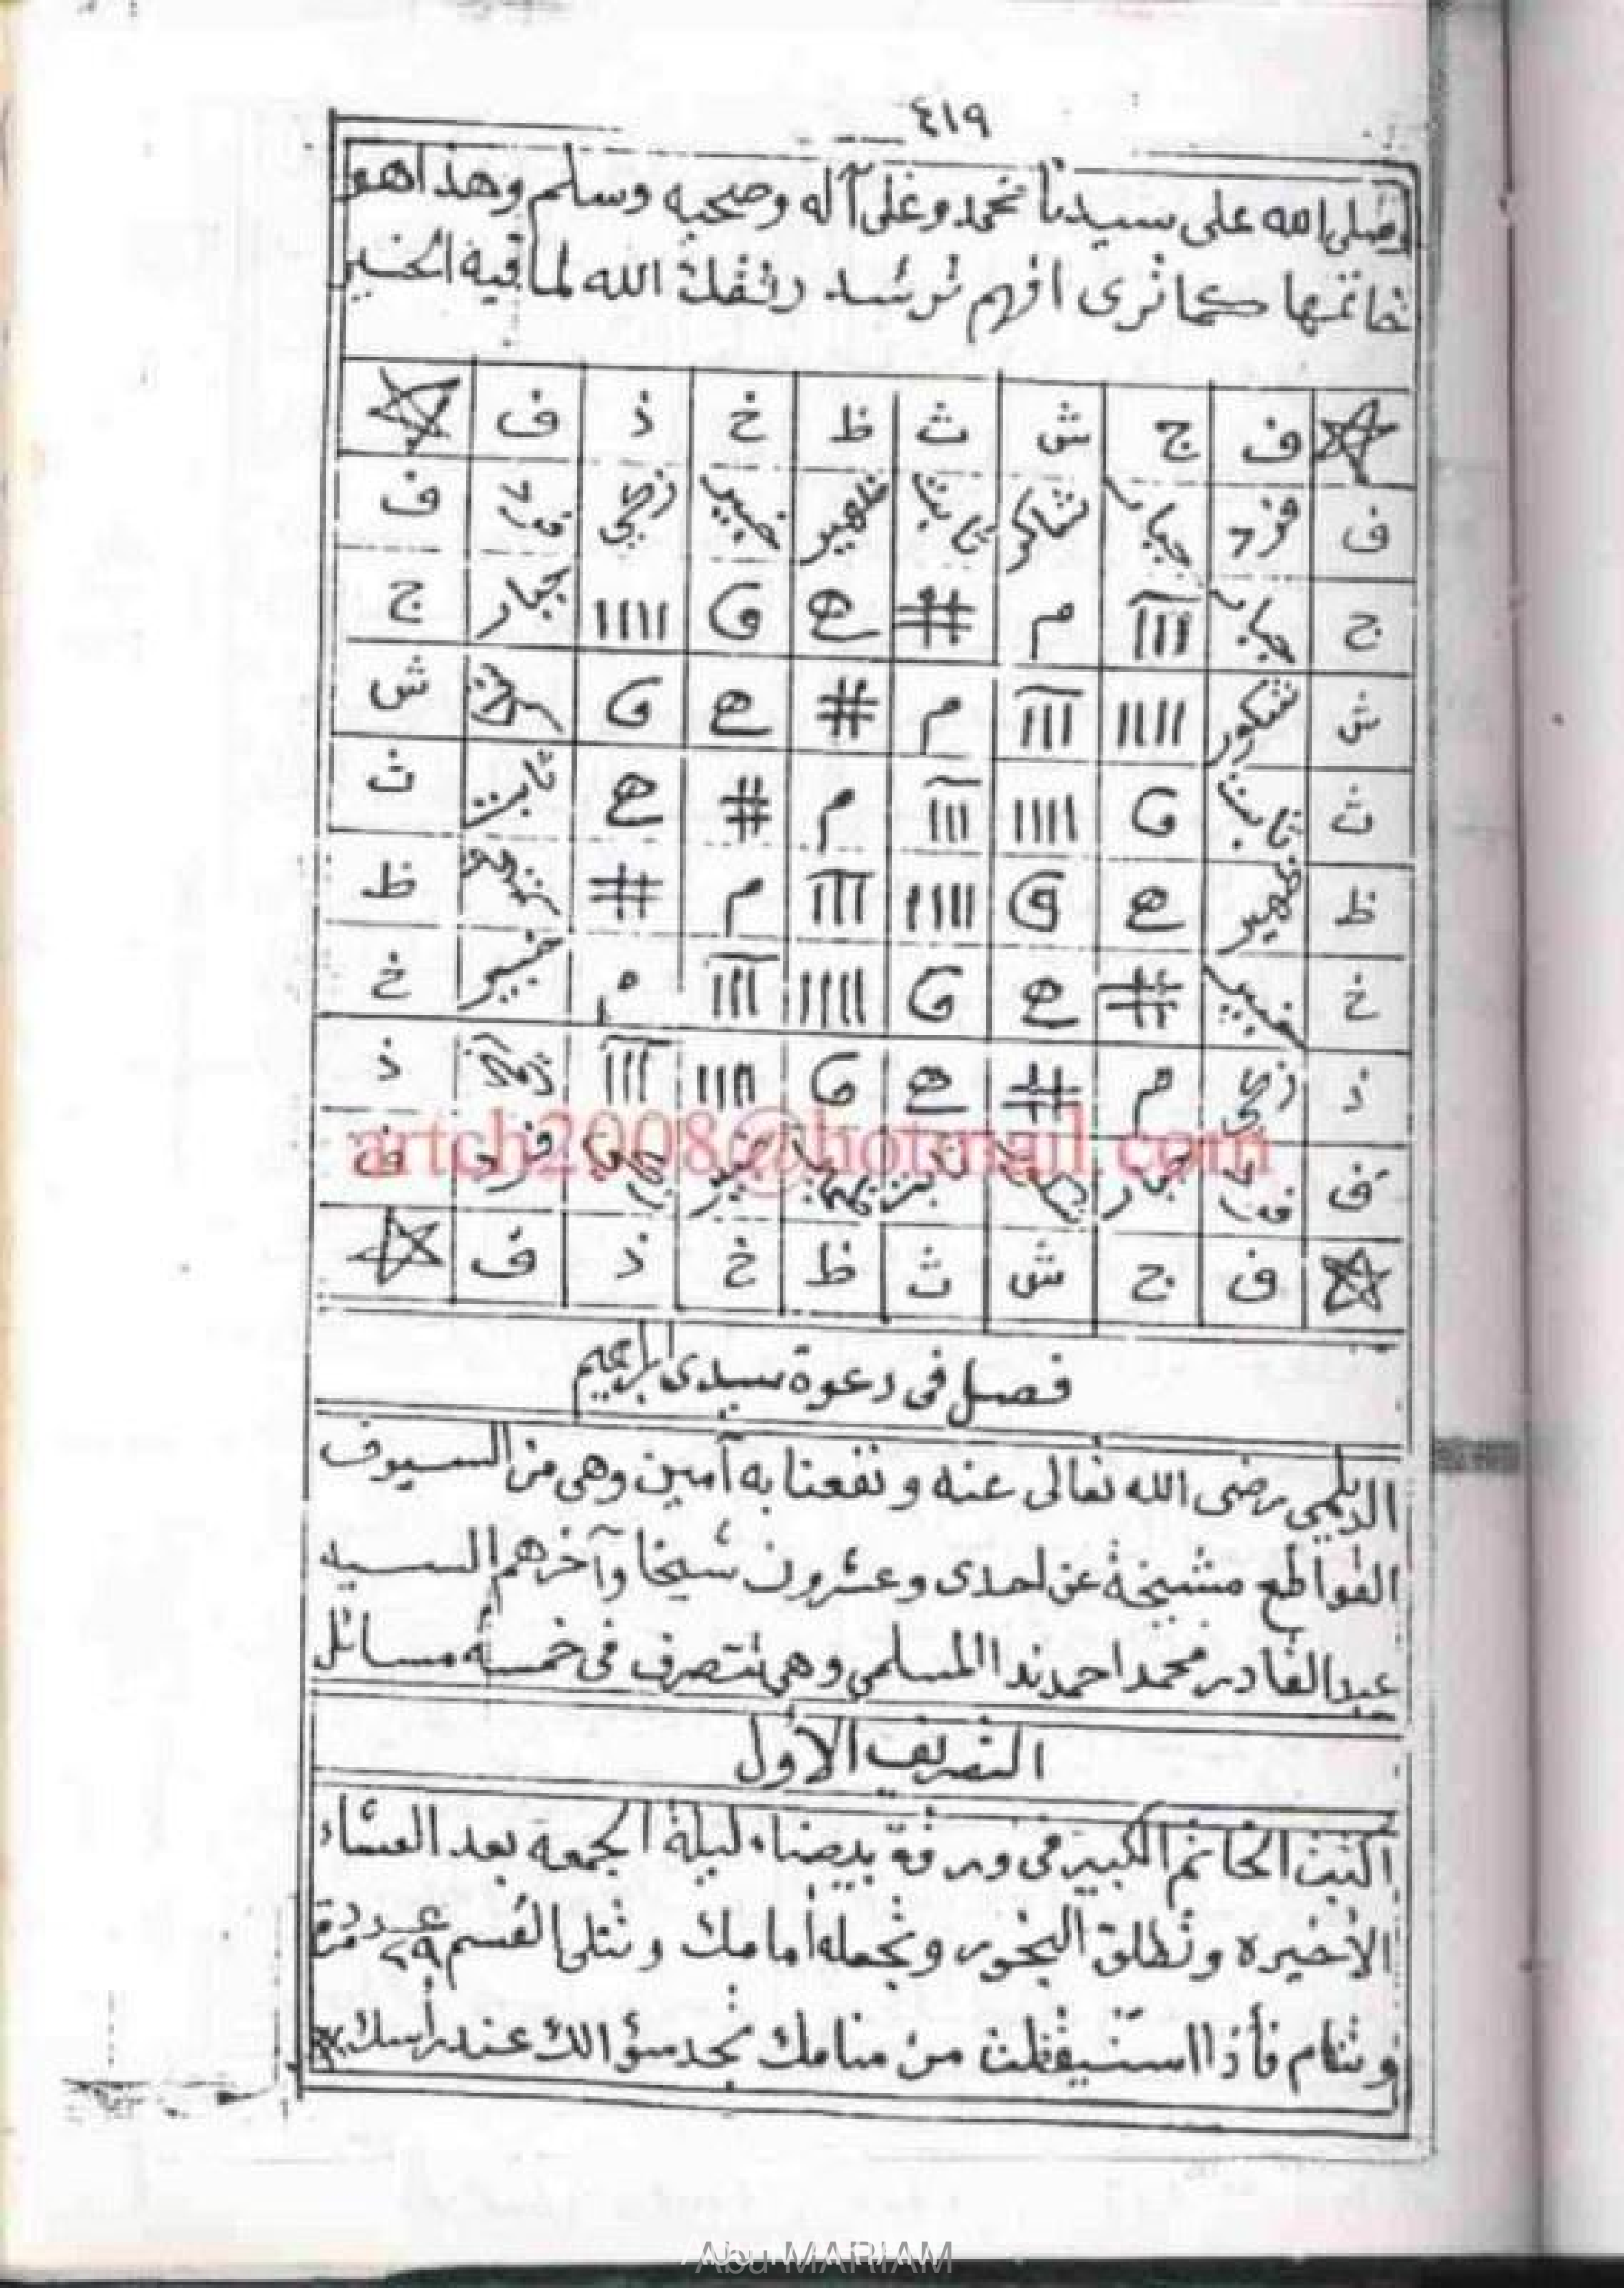 ٤١٩
وصلى الله على سيدنا محمد وعلى آله وصحبه وسلم وهذا هو
خاتمها كما ترى افهم ترشد وفقك الله لما فيه الخير
ف ج ش ث ظ خ ذ ف
ف فرد جبار شكور ثابت ظهير خبير زكي فرد ف
ج جبار م # ه و جبار ج
ش شكور م # ه و ش
ث ثابت و م # ه ثابت ث
ظ ظهير ه و م # ظ
خ خبير # ه و م خبير خ
ذ زكي م # ه و ذ
ف فرد جبار ثابت خبير فرد ف
ف ج ش ث ظ خ ذ ف
artch2008@hotmail.com
فصل فى دعوة سيدى ابراهيم
الديلمي رضى الله تعالى عنه ونفعنا به آمين وهى من السيوف
القواطع مشيخة عن احدى وعشرون شيخا وآخرهم السيد
عبد القادر محمد احمد ندا المسلمى وهى تتصرف فى خمسة مسائل
التصريف الأول
اكتب الخاتم الكبير فى ورقة بيضاء ليلة الجمعة بعد العشاء
الأخيره وتطلق البخور وتجعله أمامك وتتلى القسم عدد ٢٩ مرة
وتنام فأذا استيقظت من منامك تجد سؤالك عند رأسك
Abu MARIAM